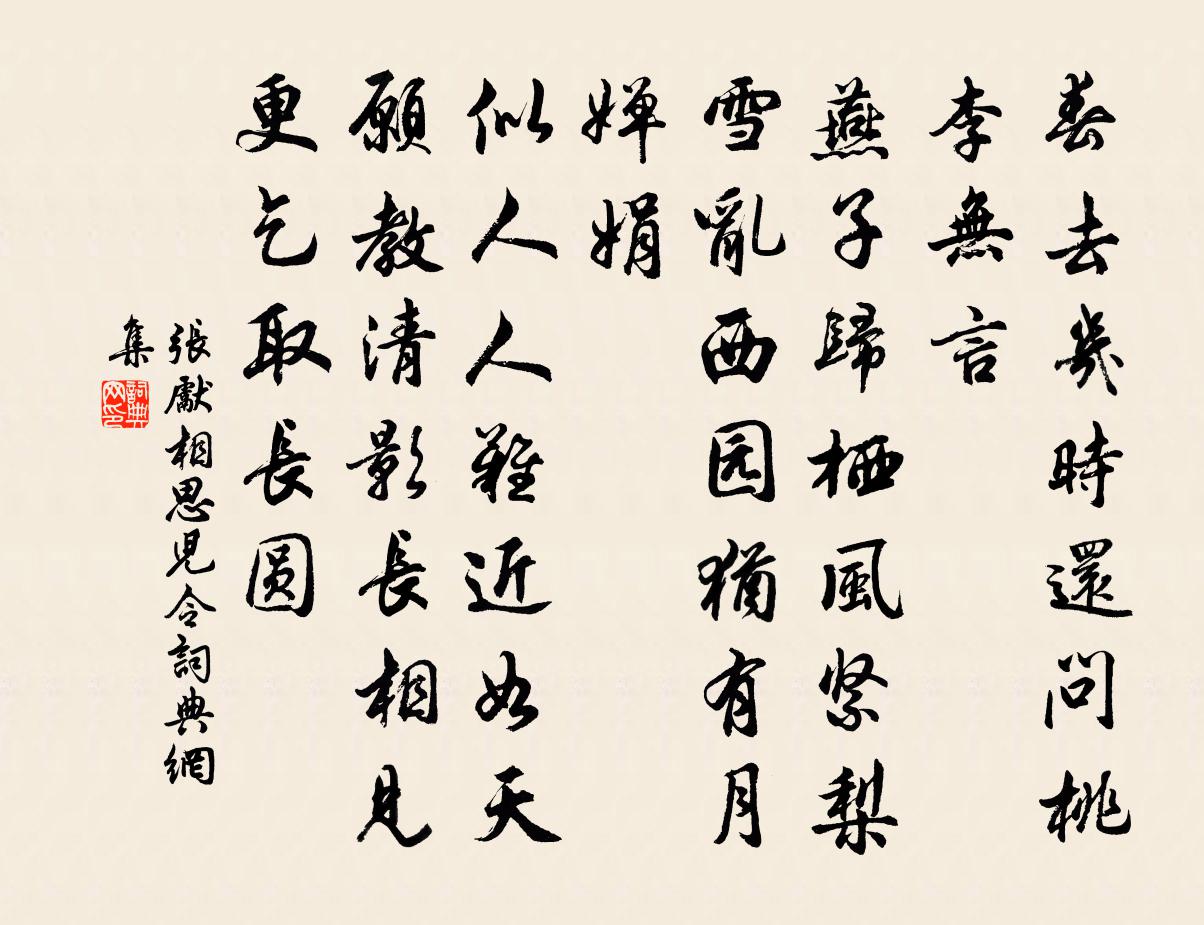 春去幾時還問桃
李無言
燕子歸栖風緊梨
雪亂西园猶有月
嬋娟
似人人難近如天
願教清影長相見
更乞取長圆
張獻相思兒令詞典網
集
詞典網印